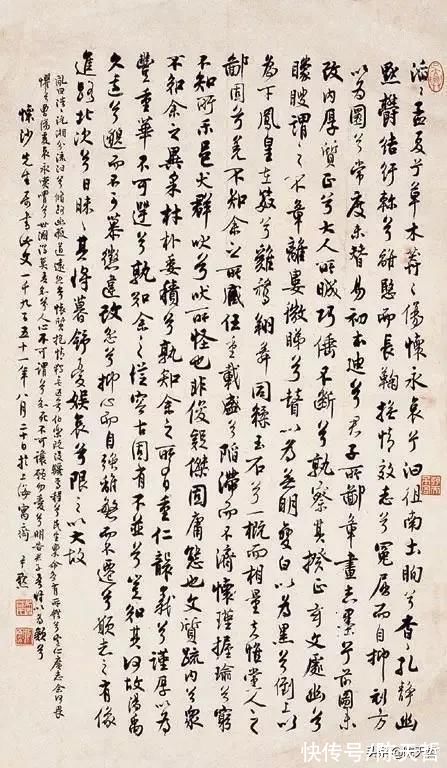 滔〻孟夏兮草木莽〻傷懷永哀兮汩徂南土眴兮杳〻孔靜幽
默鬱結紆軫兮離愍而長鞠撫情效志兮冤屈而自抑刓方
以為圜兮常度未替易初本迪兮君子所鄙章畫志墨兮前圖未
改內厚質正兮大人所晠巧倕不斲兮孰察其揆正玄文處幽兮
矇瞍謂之不章離婁微睇兮瞽以為無明變白以為黑兮倒上以
為下鳳皇在笯兮雞鶩翔舞同糅玉石兮一概而相量夫惟黨人之
鄙固兮羌不知余之所臧任重載盛兮陷滯而不濟懷瑾握瑜兮窮
不知所示邑犬群吠兮吠所怪也非俊疑傑固庸態也文質疏內兮眾
不知余之異采材朴委積兮孰知余之所有重仁襲義兮謹厚以為
豐重華不可遌兮孰知余之從容古固有不並兮豈知其何故湯禹
久遠兮邈而不可慕懲違改忿兮抑心而自強離愍而不遷兮願志之有像
進路北次兮日昧〻其將暮舒憂娛哀兮限之以大故
亂曰浩〻沅湘分流汩兮脩路幽蔽道遠忽兮懷質抱情獨無匹兮伯樂既沒驥焉程兮民生稟命各有所錯兮定心廣志余何畏
懼兮曾傷爰哀永歎喟兮世溷濁莫吾知兮人心不可謂兮知死不可讓願勿愛兮明告君子吾將以為類兮
懷沙先生屬書此文一千九百五十一年八月二十日於上海寓齋 尹默
快传号
头条